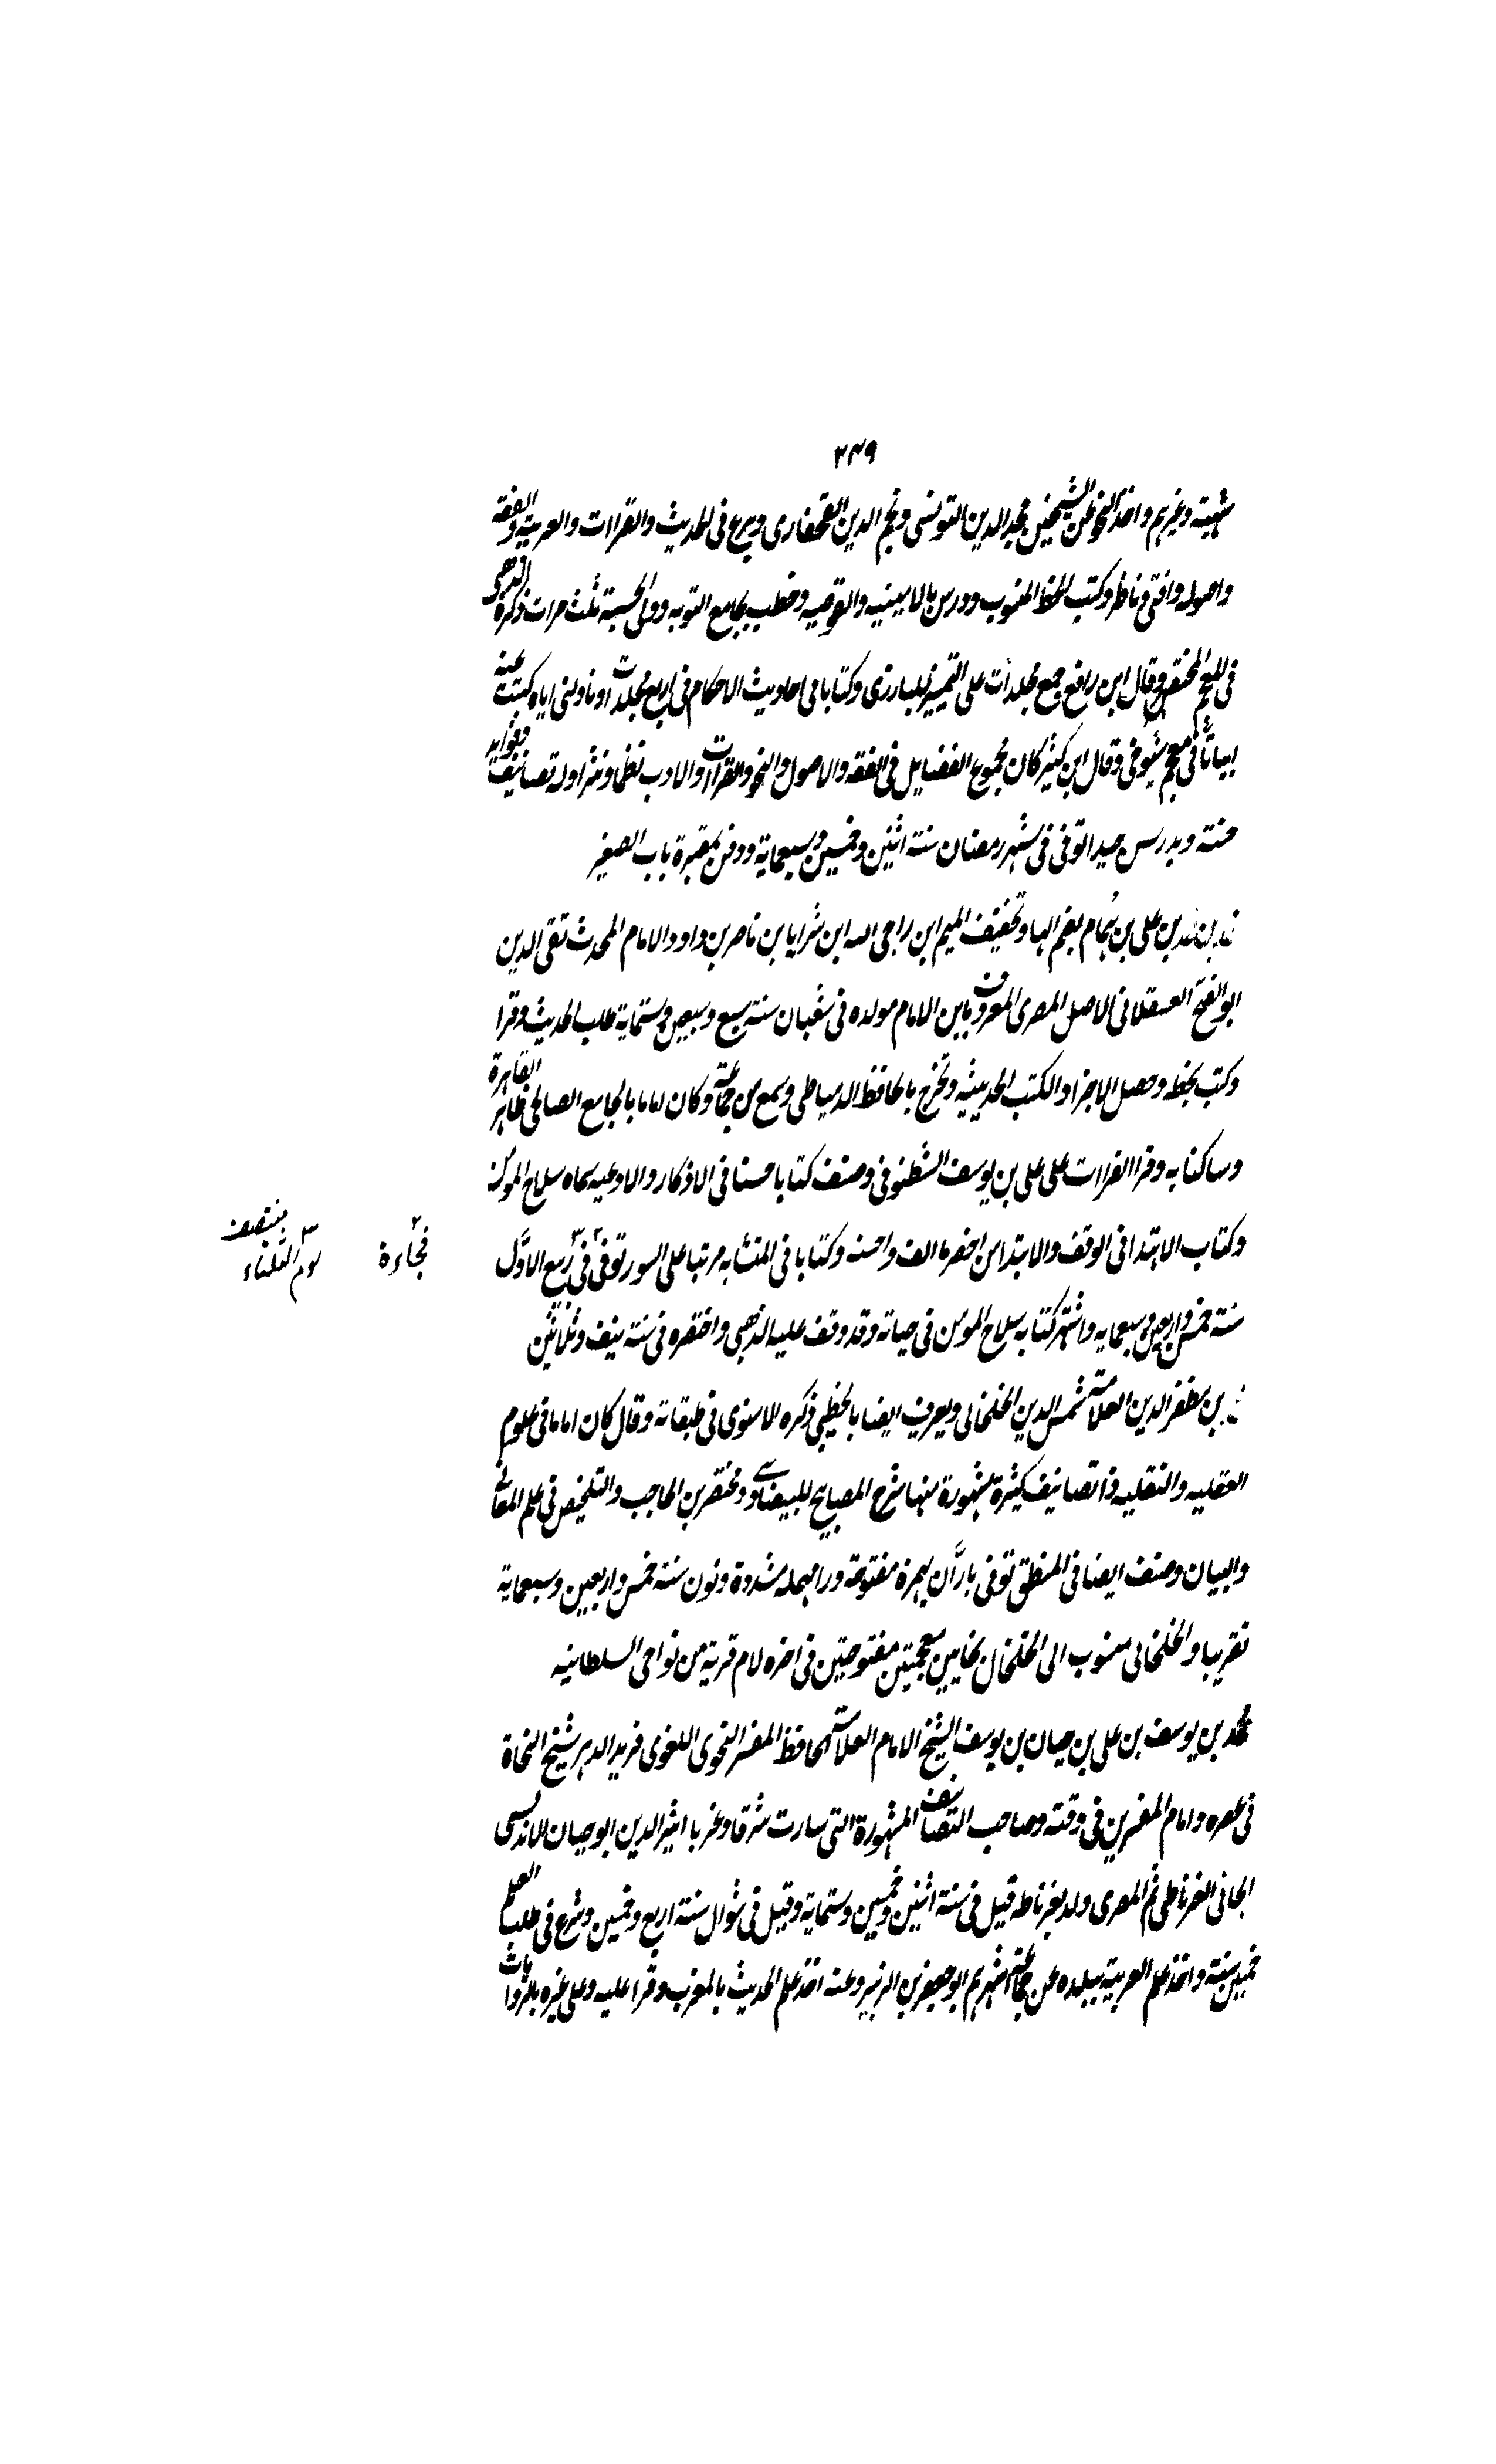 ٢٣٩
شهبة وغيرهم واخذ النحو عن الشيخين مجد الدين التونسى ونجم الدين القحفازى وبرع فى الحديث والقراات والعربية والفقه
واصوله وافتى وناظر وكتب الخط المنسوب ودرس بالامينيه والقوصيه وخطب بجامع التوبه وولى الحسبة ثلث مرات ذكره الذهبى
فى المعجم المختص وقال ابن رافع جمع مجلدات على التمييز للبارزى وكتابا فى احاديث الاحكام فى اربع مجلدات وناولنى اياه كتبت عنه
ابياتا فى معجم شيوخى وقال ابن كثير كان مجموع الفضايل فى الفقه والاصول والنحو والقراات والادب نظما ونثرا وله تصانيف وفوايد
حسنة ويدرس جيدا توفى فى شهر رمضان سنة اثنين وخمسين وسبعماية ودفن بمقبرة باب الصغير
محمد بن محمد بن على بن همام بضم الها وتخفيف الميم ابن راجى الله ابن سرايا بن ناصر بن داود الامام المحدث تقى الدين
ابو الفتح العسقلانى الاصل المصرى المعروف بابن الامام مولده فى شعبان سنة سبع وسبعين وستماية طلب الحديث وقرا
وكتب بخطه وحصل الاجزا والكتب الحديثيه وتخرج بالحافظ الدمياطى وسمع من جماعة وكان اماما بالجامع الصالحى ظاهر القاهرة
وساكنا به وقرا القراات على على بن يوسف الشطنوفى وصنف كتابا حسنا فى الاذكار والادعيه سماه سلاح المؤمن
وكتاب الاهتدا فى الوقف والابتدا من اخصر ما الف واحسنه وكتابا فى المتشابه مرتبا على السور توفى فى ربيع الاول
فجاءة
منتصف
يوم الثلثاء
سنة خمس واربعين وسبعمايه واشتهر كتابه سلاح المؤمن فى حياته وقد وقف عليه الذهبى واختصره فى سنة نيف وثلاثين
محمد بن مظفر الدين العلامة شمس الدين الخلخالى ويعرف ايضا بالخطيبى ذكره الاسنوى فى طبقاته وقال كان اماما فى علوم
العقليه والنقليه ذا تصانيف كثيرة مشهورة منها شرح المصابيح للبيضاوى ومختصر بن الحاجب والتلخيص فى علم المعانى
والبيان وصنف ايضا فى المنطق توفى بارّان بهمزة مفتوحة ورا مهمله مشددة ونون سنة خمس واربعين وسبعماية
تقريبا والخلخالى منسوب الى الخلخال بخايين معجمتين مفتوحتين فى اخره لام قرية من نواحى السلطانيه
محمد بن يوسف بن على بن حيان بن يوسف الشيخ الامام العلامة الحافظ المفسر النحوى اللغوى فريد الدهر شيخ النحاة
فى عصره وامام المفسرين فى وقته وصاحب التصانيف المشهورة التى سارت شرقا وغربا اثير الدين ابو حيان الاندلسى
الجانى الغرناطى ثم المصرى ولد بغرناطه قيل فى سنة اثنين وخمسين وستماية وقيل فى شوال سنة اربع وخمسين وشرع فى طلب العلم
خمسين سنة واخذ علم العربية ببلده عن جماعة اشهرهم ابو جعفر بن الزبير وعنه اخذ علم الحديث بالمغرب وقرا عليه وعلى غيره بالروايات